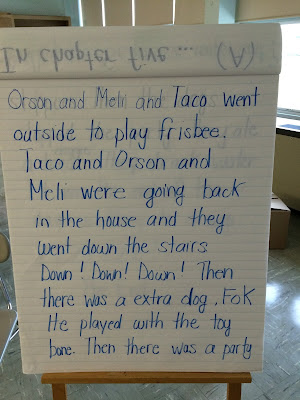 In chapter five ... (A)
Orson and Meli and Taco went
outside to play frisbee.
Taco and Orson and
Meli were going back
in the house and they
went down the stairs
Down! Down! Down! Then
there was a extra dog. Fox
He played with the toy
bone. Then there was a party